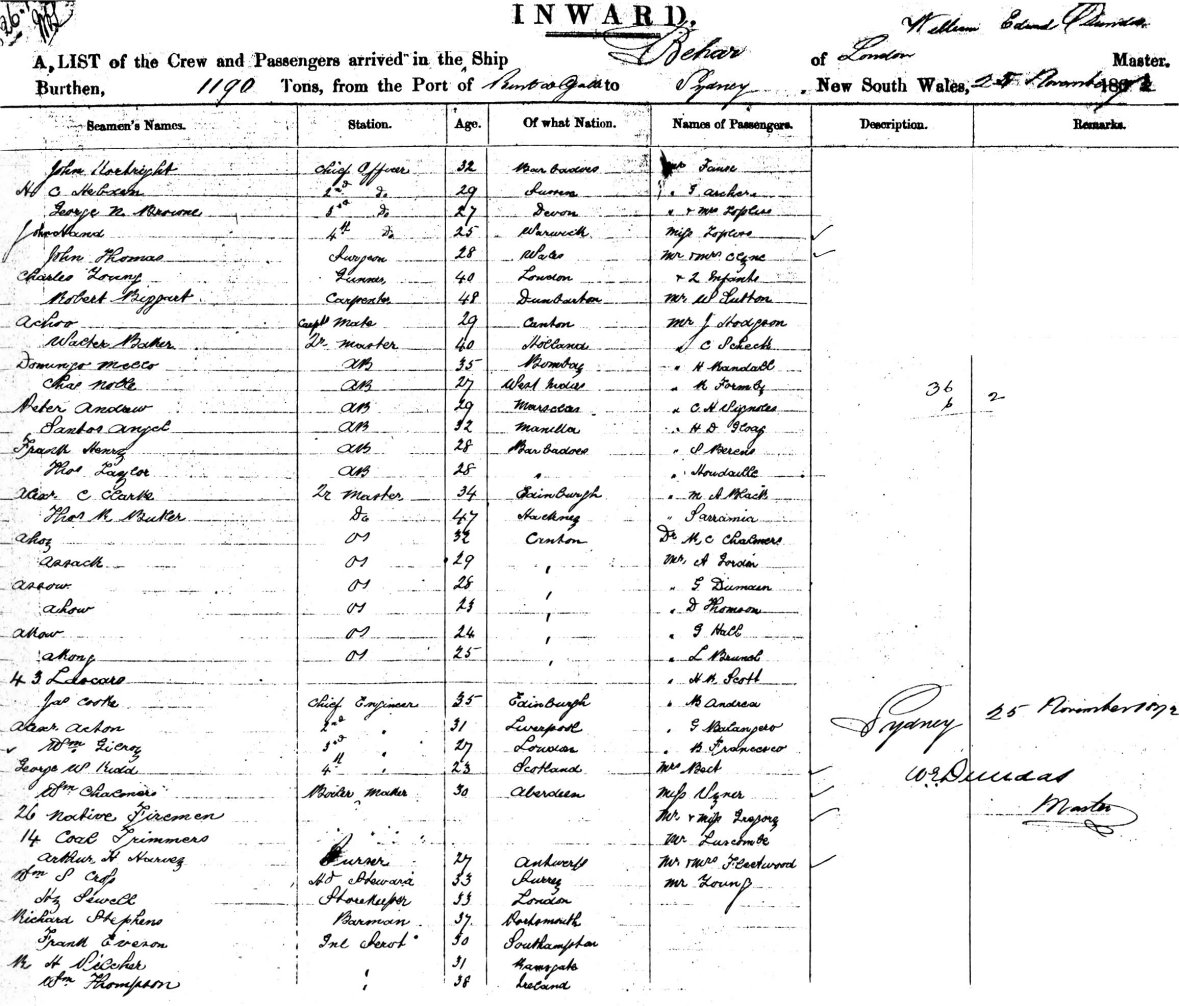 INWARD.
William Edward Dundas
A LIST of the Crew and Passengers arrived in the Ship Behar of London Master.
Burthen, 1190 Tons, from the Port of to Sydney New South Wales, 25 November 1872
Seamen's Names. Station. Age. Of what Nation. Names of Passengers. Description. Remarks.
John Chief Officer 32 Barbadoes Mr
H C 2nd Do 29 " Archer
George R Browne 3rd Do 27 Devon " & Mrs
John Hand 4th Do 25 Warwick Miss
John Thomas Surgeon 28 Wales Mr & Mrs Clyne
Charles Young Gunner 40 London & 2 Infants
Robert Carpenter 48 Dumbarton Mr W Sutton
Achoo Carp's Mate 29 Canton Mr J Hodgson
Walter Baker Qr Master 40 Holland " C Scheck
Domingo Mello AB 35 Bombay " H Randall
Chas Noble AB 27 West Indies " R Formby 36
Peter Andrew AB 29 " C H 6 2
Santos Angel AB 32 Manilla " H D Gloag
Frank Henry AB 28 Barbadoes " S Berens
Thos Taylor AB 28 " " Houdaille
Alexr C Clarke Qr Master 34 Edinburgh " M A Black
Thos R Do 47 Hackney " Sarramia
Ahoy OS 32 Canton Dr C Chalmers
Assack OS 29 " Mr A
Assow OS 28 " " G
Ahow OS 23 " " D Thomson
Akow OS 24 " " G Hall
Akong OS 25 " " L
43 Lascars " Scott
Jas Cooke Chief Engineer 35 Edinburgh " B Andrea
Alexr Acton 2nd " 31 Liverpool " G Balangero Sydney 25 November 1872
Wm Gilroy 3rd " 27 London " B Francesco
George W Kidd 4th " 23 Scotland Mrs W E Dundas
Wm Chalmers Boiler Maker 30 Aberdeen Miss Master
26 Native Firemen Mr & Miss Gregory
14 Coal Trimmers Mr Luscombe
Arthur H Harvey Purser 27 Antwerp Mr & Mrs Fleetwood
Wm S Hd Steward 33 Surrey Mr Young
Hy Sewell Storekeeper 33 London
Richard Stephens Barman 37 Portsmouth
Frank Eveson 30 Southampton
R H Pilcher " 31 Ramsgate
Wm Thompson " 38 Ireland